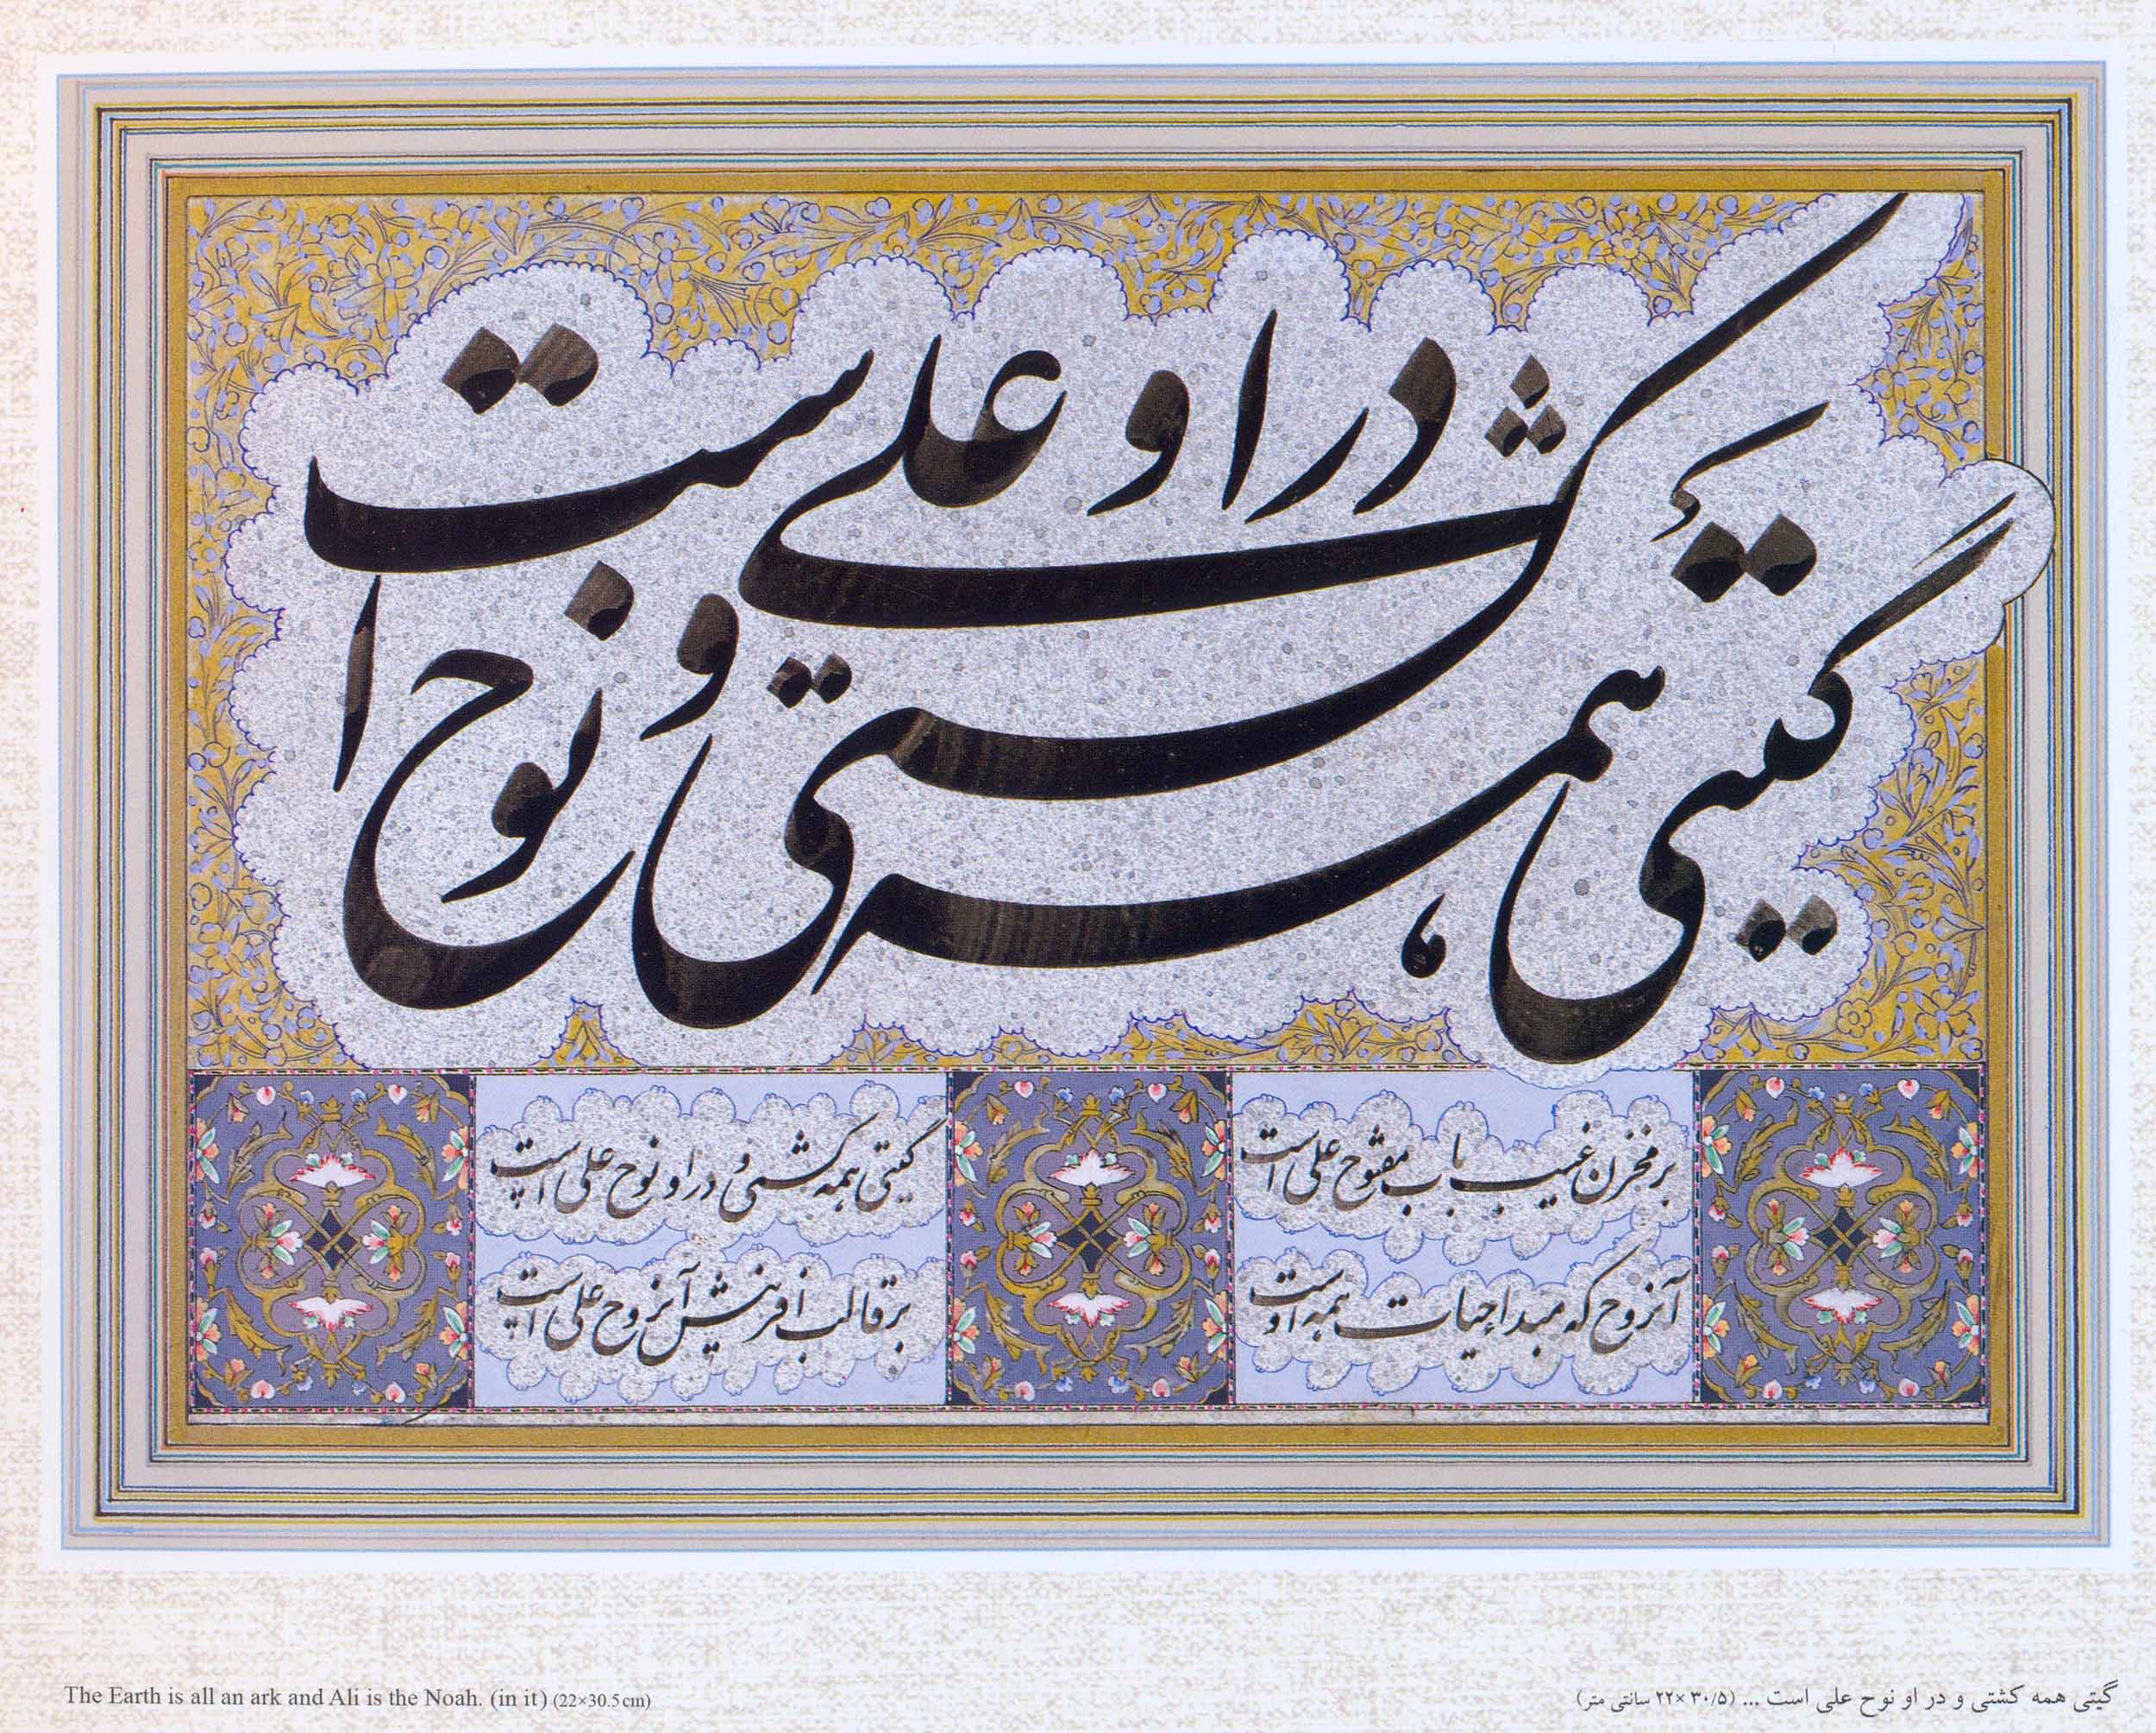 گیتی همه کشتی و در او نوح علی است
بر مخزن غیب باب مفتوح علی است
گیتی همه کشتی و در او نوح علی است
آنروح که مبداء حیات همه اوست
بر قالب آفرینش آنروح علی است
The Earth is all an ark and Ali is the Noah. (in it) (22×30.5 cm)
گیتی همه کشتی و در او نوح علی است ... (۳۰/۵ ×۲۲ سانتی متر)